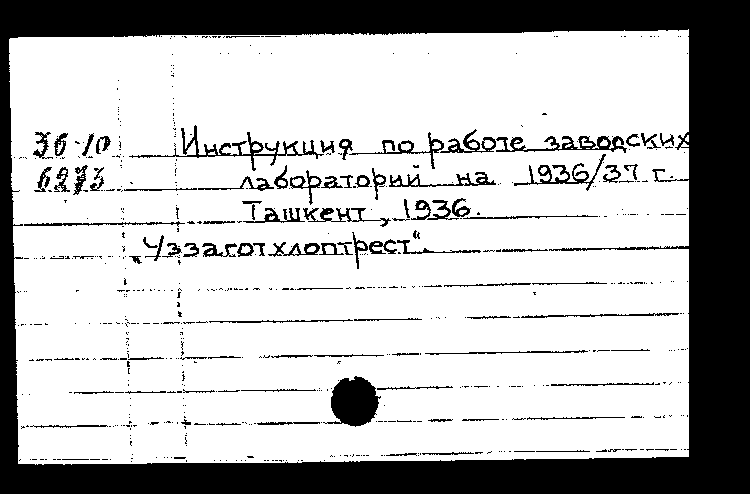 36-10 Инструкция по работе заводских
6273 лабораторий на 1936/37 г.
Ташкент, 1936.
„Уззаготхлоптрест“.